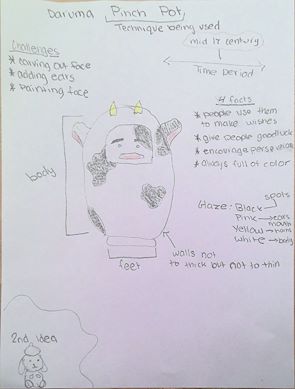 Daruma Pinch Pot
Technique being used
mid 17 century
Time period
Challenges
* carving out face
* adding ears
* painting face
4 facts
* people use them
to make wishes
* give people goodluck
* encourage perseverance
* always full of color
body
spots
Glaze: Black
Pink → ears
mouth
Yellow → horns
White → body
walls not
to thick but not to thin
feet
2nd idea